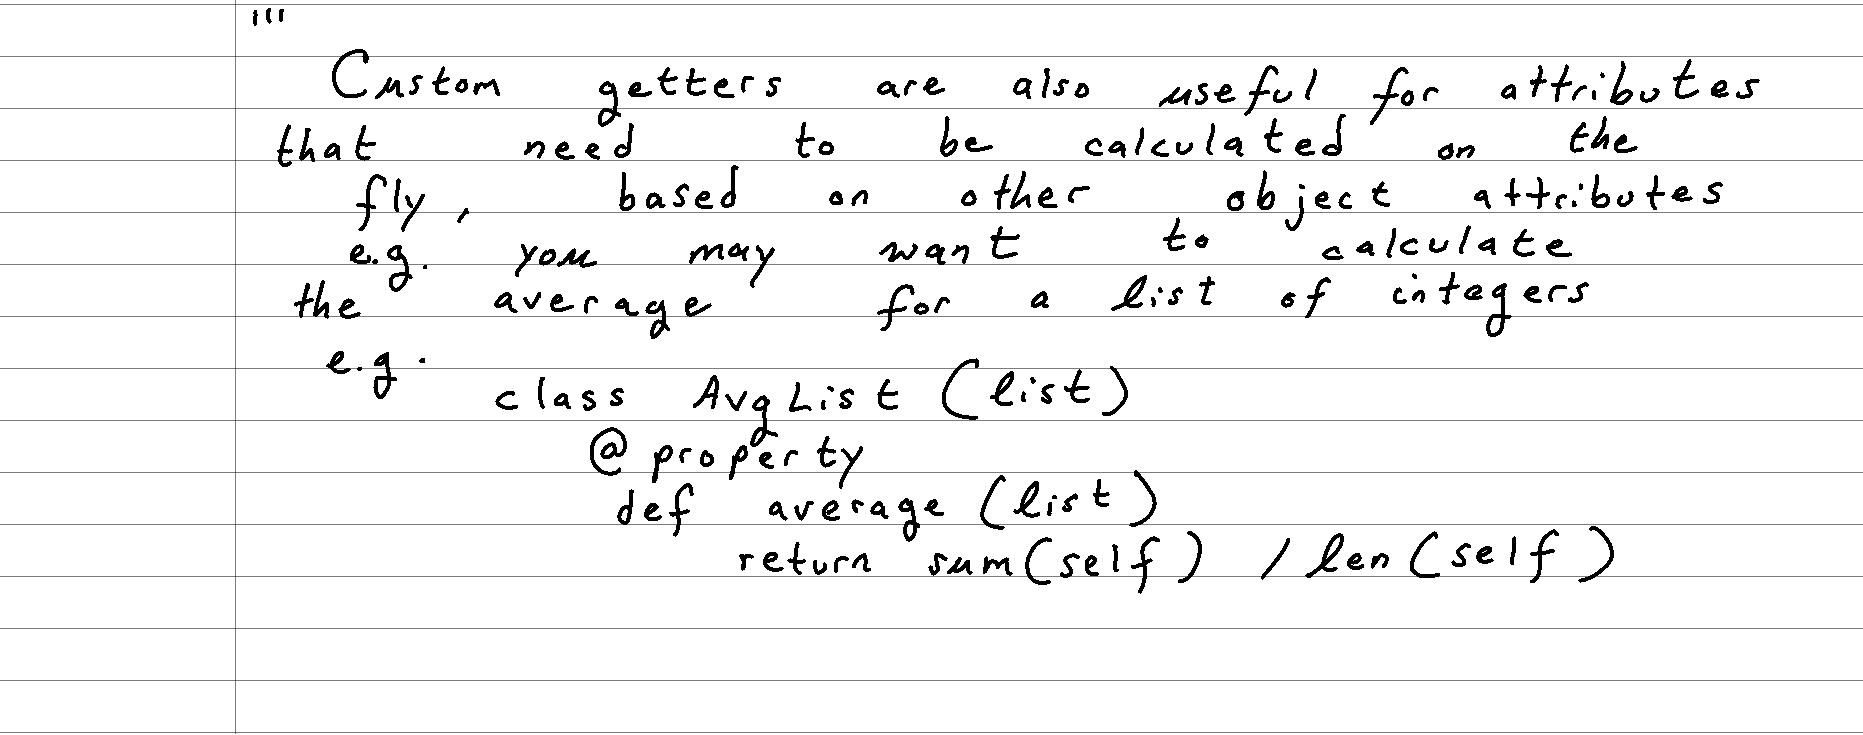 '''
Custom getters are also useful for attributes
that need to be calculated on the
fly, based on other object attributes
e.g. you may want to calculate
the average for a list of integers
e.g.
class AvgList (list)
@property
def average (list)
return sum(self) / len(self)